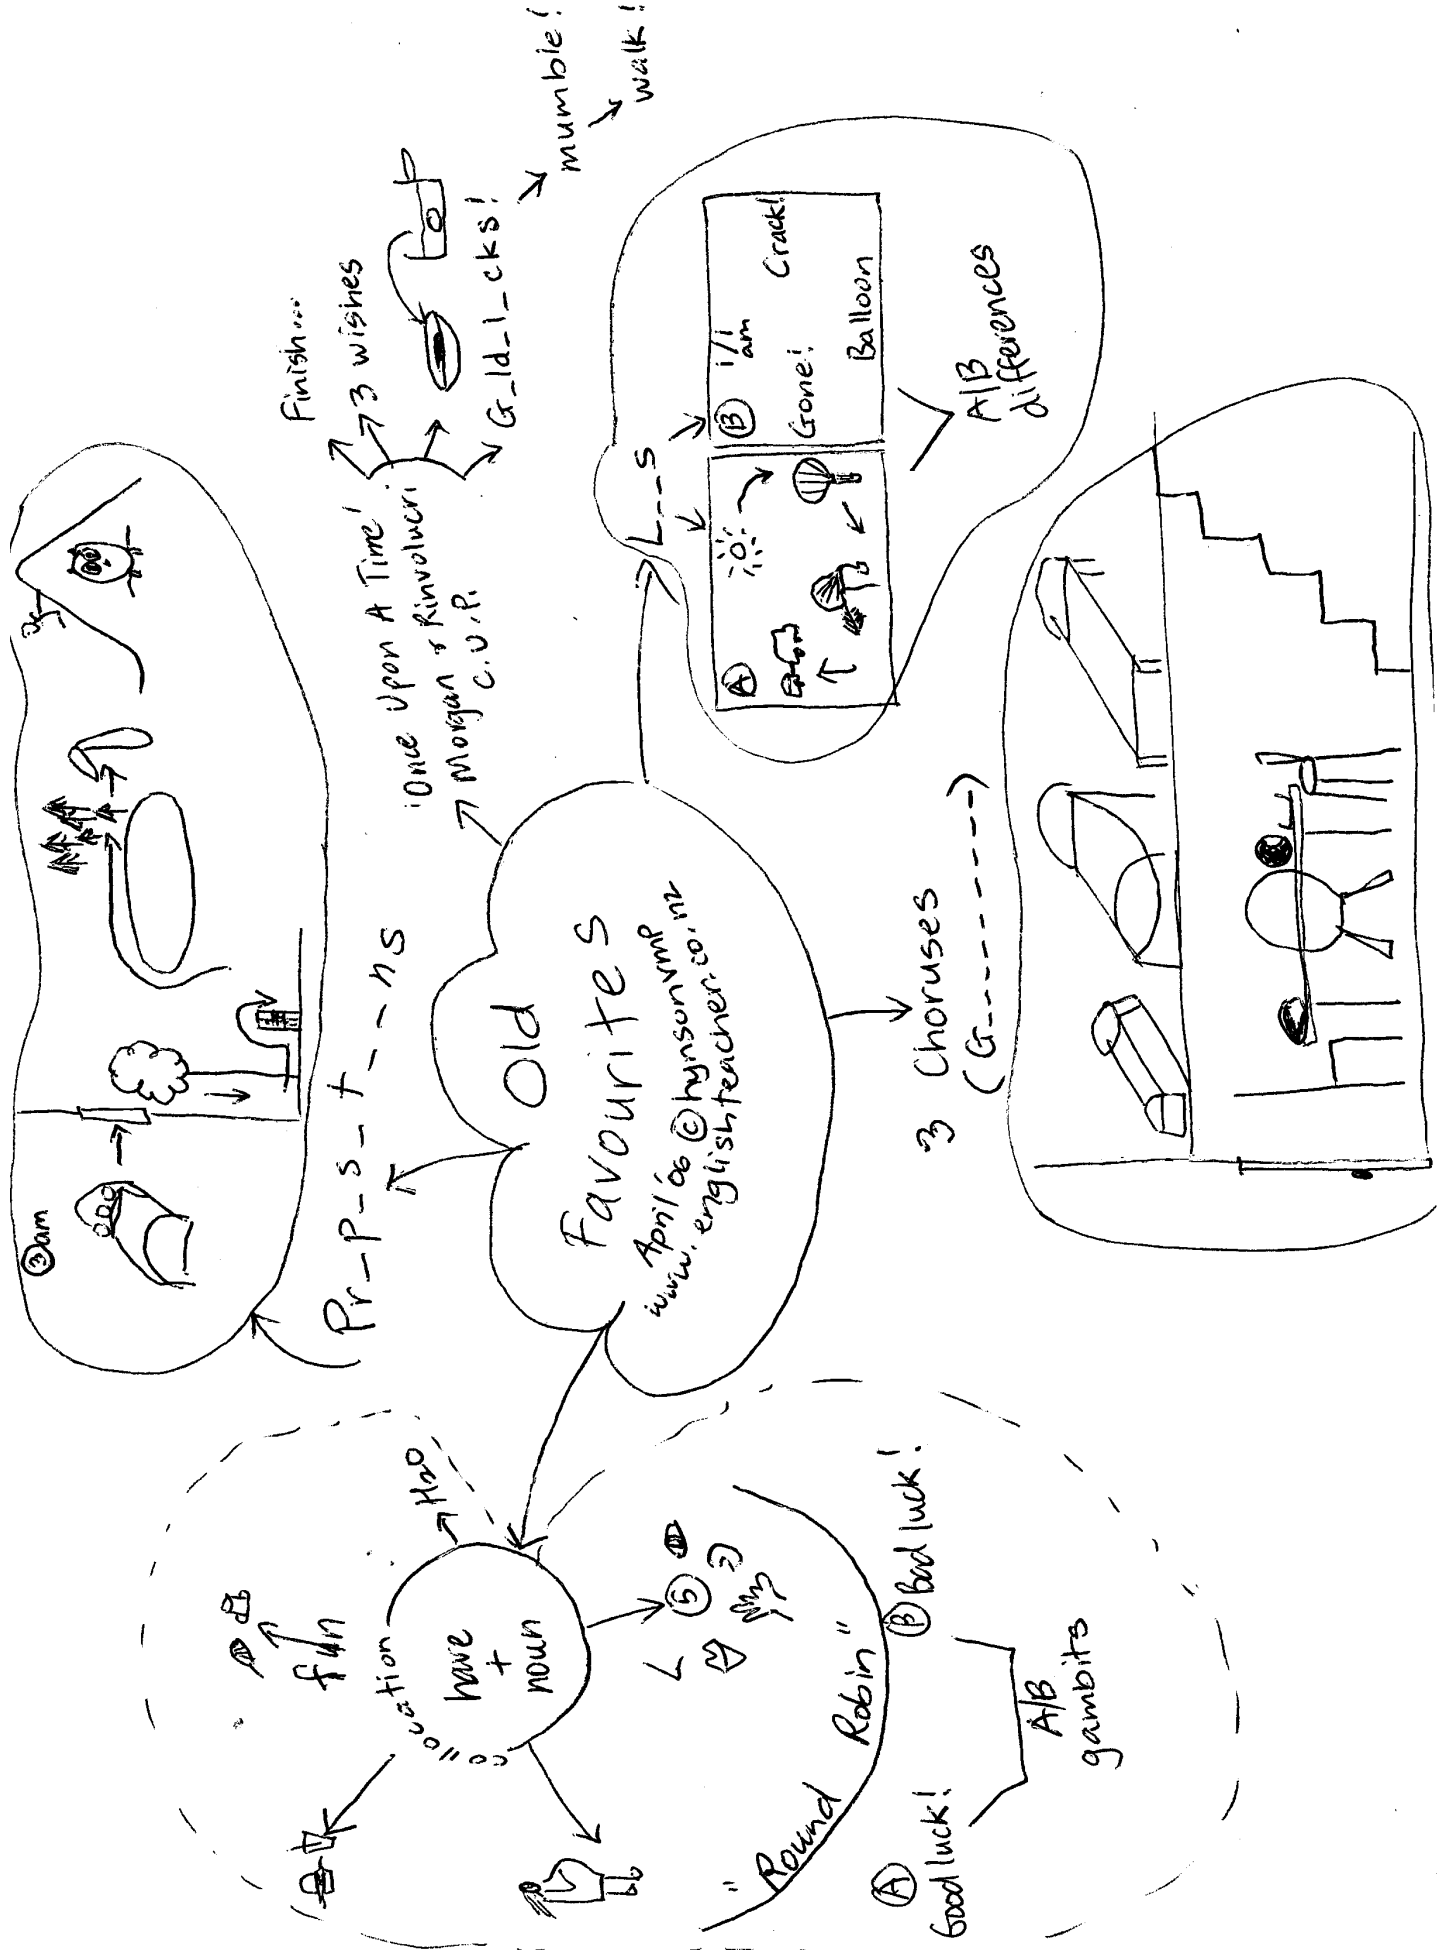 Old
Favourites
April '06 © hynsonvmp
www.englishteacher.co.nz
Pr_p_s_t__ns
3am
'Once Upon A Time'
Morgan & Rinvolucri
C.U.P.
Finish...
3 wishes
G_ld_l_cks!
mumble!
walk!
L___s
A
B
i/i
am
Gone!
Crack!
Balloon
A/B
differences
3 Choruses
(G_______)
collocation
have
+
noun
fun
H2O
5
"Round Robin"
A
Good luck!
B Bad luck!
A/B
gambits